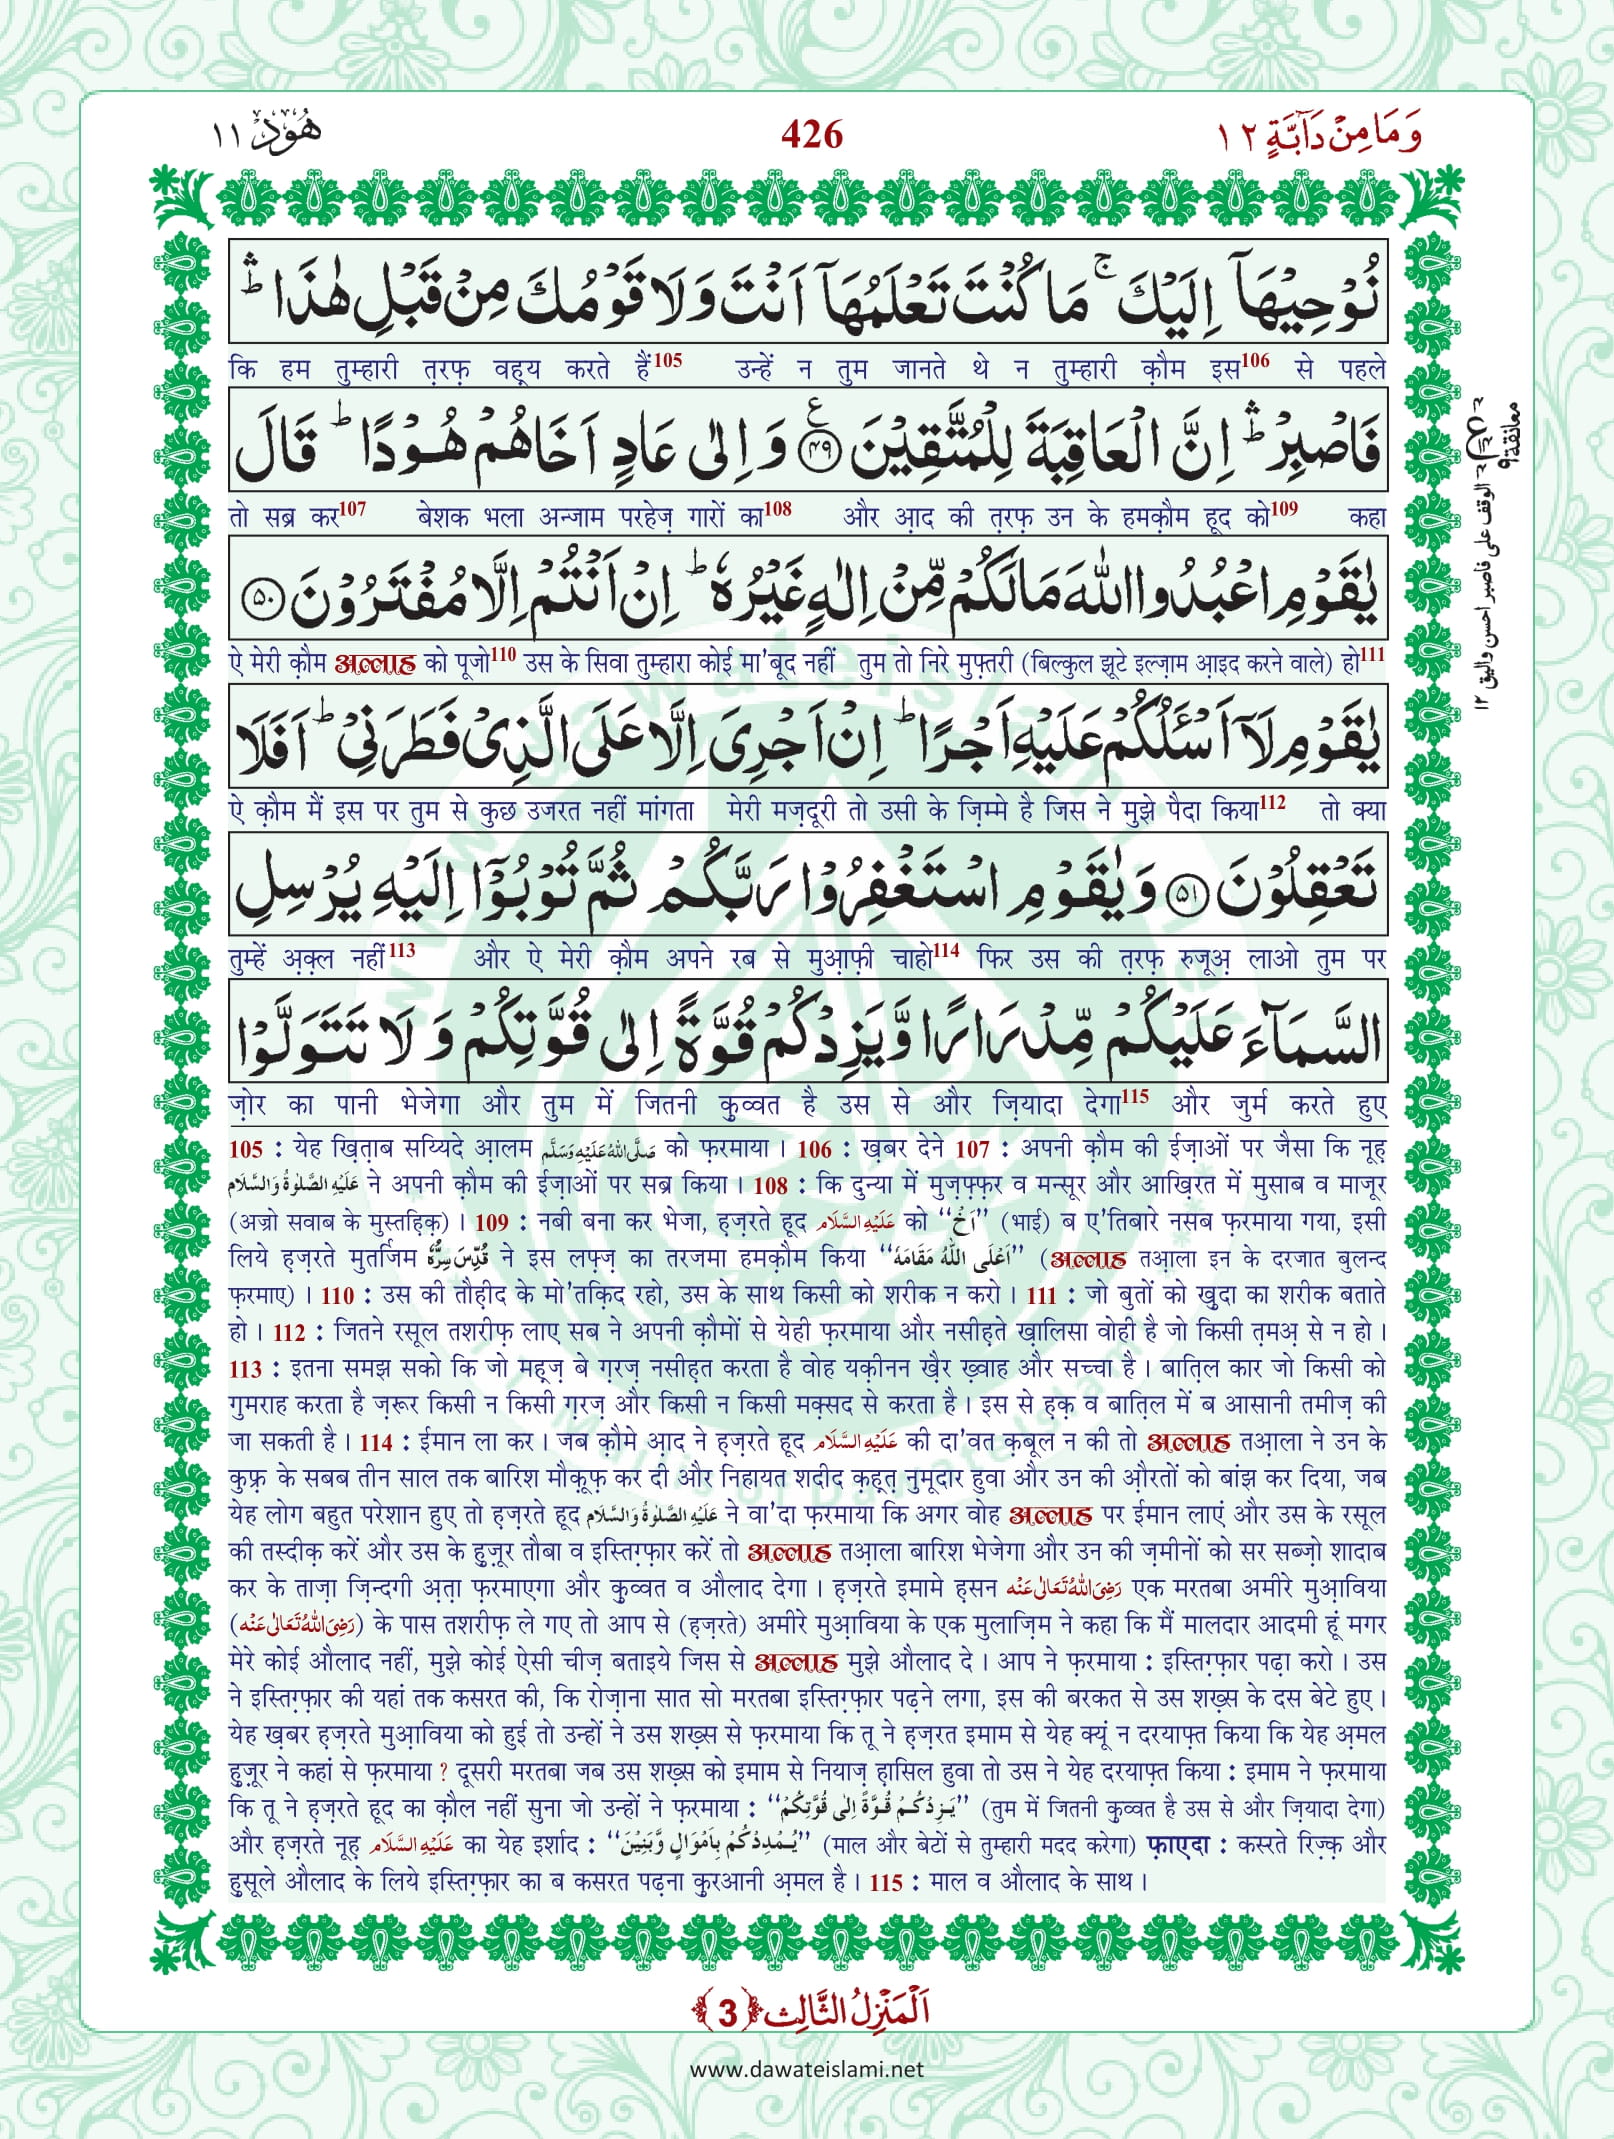 وَمَا مِنْ دَآبَّةٍ ١٢
426
هُوْد ١١
نُوْحِيْهَاۤ اِلَيْكَ ۚ مَا كُنْتَ تَعْلَمُهَاۤ اَنْتَ وَلَا قَوْمُكَ مِنْ قَبْلِ هٰذَا ؕۛ
कि हम तुम्हारी त़रफ़ वह़्य करते हैं105 उन्हें न तुम जानते थे न तुम्हारी क़ौम इस106 से पहले
فَاصْبِرْ ؕۛ اِنَّ الْعَاقِبَةَ لِلْمُتَّقِيْنَ ﴿٤٩﴾ ع وَ اِلٰى عَادٍ اَخَاهُمْ هُوْدًا ؕ قَالَ
तो सब्र कर107 बेशक भला अन्जाम परहेज़ गारों का108 और आ़द की त़रफ़ उन के हमक़ौम हूद को109 कहा
يٰقَوْمِ اعْبُدُوا اللّٰهَ مَا لَكُمْ مِّنْ اِلٰهٍ غَيْرُهٗ ؕ اِنْ اَنْتُمْ اِلَّا مُفْتَرُوْنَ ﴿٥٠﴾
ऐ मेरी क़ौम अल्लाह को पूजो110 उस के सिवा तुम्हारा कोई मा'बूद नहीं तुम तो निरे मुफ़्तरी (बिल्कुल झूटे इल्ज़ाम आ़इद करने वाले) हो111
يٰقَوْمِ لَاۤ اَسْـَٔلُكُمْ عَلَيْهِ اَجْرًا ؕ اِنْ اَجْرِىَ اِلَّا عَلَى الَّذِىْ فَطَرَنِىْ ؕ اَفَلَا
ऐ क़ौम मैं इस पर तुम से कुछ उजरत नहीं मांगता मेरी मज़दूरी तो उसी के ज़िम्मे है जिस ने मुझे पैदा किया112 तो क्या
تَعْقِلُوْنَ ﴿٥١﴾ وَيٰقَوْمِ اسْتَغْفِرُوْا رَبَّكُمْ ثُمَّ تُوْبُوْۤا اِلَيْهِ يُرْسِلِ
तुम्हें अ़क़्ल नहीं113 और ऐ मेरी क़ौम अपने रब से मुआ़फ़ी चाहो114 फिर उस की त़रफ़ रुजूअ़ लाओ तुम पर
السَّمَآءَ عَلَيْكُمْ مِّدْرَارًا وَّيَزِدْكُمْ قُوَّةً اِلٰى قُوَّتِكُمْ وَ لَا تَتَوَلَّوْا
ज़ोर का पानी भेजेगा और तुम में जितनी क़ुव्वत है उस से और ज़ियादा देगा115 और जुर्म करते हुए
105 : येह ख़ित़ाब सय्यिदे आ़लम صَلَّى اللّٰهُ عَلَيْهِ وَسَلَّم को फ़रमाया । 106 : ख़बर देने 107 : अपनी क़ौम की ईज़ाओं पर जैसा कि नूह़
عَلَيْهِ الصَّلٰوةُ وَالسَّلَام ने अपनी क़ौम की ईज़ाओं पर सब्र किया । 108 : कि दुन्या में मुज़फ़्फ़र व मन्सूर और आख़िरत में मुसाब व माजूर
(अज्रो सवाब के मुस्तह़िक़) । 109 : नबी बना कर भेजा, ह़ज़रते हूद عَلَيْهِ السَّلَام को “اَخٌ” (भाई) ब ए'तिबारे नसब फ़रमाया गया, इसी
लिये ह़ज़रते मुतर्जिम قُدِّسَ سِرُّهٗ ने इस लफ़्ज़ का तरजमा हमक़ौम किया “اَعْلَى اللّٰهُ مَقَامَهٗ” (अल्लाह तआ़ला इन के दरजात बुलन्द
फ़रमाए) । 110 : उस की तौह़ीद के मो'तक़िद रहो, उस के साथ किसी को शरीक न करो । 111 : जो बुतों को ख़ुदा का शरीक बताते
हो । 112 : जितने रसूल तशरीफ़ लाए सब ने अपनी क़ौमों से येही फ़रमाया और नसीह़ते ख़ालिसा वोही है जो किसी त़मअ़ से न हो ।
113 : इतना समझ सको कि जो मह़ूज़ बे ग़रज़ नसीह़त करता है वोह यक़ीनन ख़ैर ख़्वाह और सच्चा है । बात़िल कार जो किसी को
गुमराह करता है ज़रूर किसी न किसी ग़रज़ और किसी न किसी मक़्सद से करता है । इस से ह़क़ व बात़िल में ब आसानी तमीज़ की
जा सकती है । 114 : ईमान ला कर । जब क़ौमे आ़द ने ह़ज़रते हूद عَلَيْهِ السَّلَام की दा'वत क़बूल न की तो अल्लाह तआ़ला ने उन के
कुफ़्र के सबब तीन साल तक बारिश मौक़ूफ़ कर दी और निहायत शदीद क़ह़त़ नुमूदार हुवा और उन की औ़रतों को बांझ कर दिया, जब
येह लोग बहुत परेशान हुए तो ह़ज़रते हूद عَلَيْهِ الصَّلٰوةُ وَالسَّلَام ने वा'दा फ़रमाया कि अगर वोह अल्लाह पर ईमान लाएं और उस के रसूल
की तस्दीक़ करें और उस के ह़ुज़ूर तौबा व इस्तिग़्फ़ार करें तो अल्लाह तआ़ला बारिश भेजेगा और उन की ज़मीनों को सर सब्ज़ो शादाब
कर के ताज़ा ज़िन्दगी अ़त़ा फ़रमाएगा और क़ुव्वत व औलाद देगा । ह़ज़रते इमामे ह़सन رَضِىَ اللّٰهُ تَعَالٰى عَنْه एक मरतबा अमीरे मुआ़विया
(رَضِىَ اللّٰهُ تَعَالٰى عَنْه) के पास तशरीफ़ ले गए तो आप से (ह़ज़रते) अमीरे मुआ़विया के एक मुलाज़िम ने कहा कि मैं मालदार आदमी हूं मगर
मेरे कोई औलाद नहीं, मुझे कोई ऐसी चीज़ बताइये जिस से अल्लाह मुझे औलाद दे । आप ने फ़रमाया : इस्तिग़्फ़ार पढ़ा करो । उस
ने इस्तिग़्फ़ार की यहां तक कसरत की, कि रोज़ाना सात सो मरतबा इस्तिग़्फ़ार पढ़ने लगा, इस की बरकत से उस शख़्स के दस बेटे हुए ।
येह ख़बर ह़ज़रते मुआ़विया को हुई तो उन्हों ने उस शख़्स से फ़रमाया कि तू ने ह़ज़रत इमाम से येह क्यूं न दरयाफ़्त किया कि येह अ़मल
ह़ुज़ूर ने कहां से फ़रमाया ? दूसरी मरतबा जब उस शख़्स को इमाम से नियाज़ ह़ासिल हुवा तो उस ने येह दरयाफ़्त किया : इमाम ने फ़रमाया
कि तू ने ह़ज़रते हूद का क़ौल नहीं सुना जो उन्हों ने फ़रमाया : “يَزِدْكُمْ قُوَّةً اِلٰى قُوَّتِكُمْ” (तुम में जितनी क़ुव्वत है उस से और ज़ियादा देगा)
और ह़ज़रते नूह़ عَلَيْهِ السَّلَام का येह इर्शाद : “يُمْدِدْكُمْ بِاَمْوَالٍ وَّبَنِيْنَ” (माल और बेटों से तुम्हारी मदद करेगा) फ़ाएदा : कस्ते रिज़्क़ और
ह़ुसूले औलाद के लिये इस्तिग़्फ़ार का ब कसरत पढ़ना क़ुरआनी अ़मल है । 115 : माल व औलाद के साथ ।
معانقة ٩
الوقف على فاصبر احسن واليق ١٢
اَلْمَنْزِلُ الثَّالِث ﴿3﴾
www.dawateislami.net